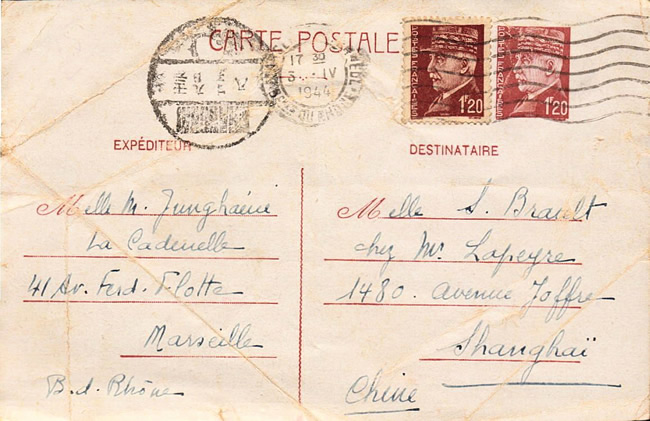 CARTE POSTALE
17 30
IV
1944
POSTES FRANÇAISES
1F20
POSTES FRANÇAISES
1F20
EXPÉDITEUR
Melle M. Junghaéni
La Cadenelle
41 Av. Ferd. Flotte
Marseille
B. d. Rhône
DESTINATAIRE
Melle S. Brault
chez Mr Lapeyre
1480. avenue Joffre
Shanghaï
Chine